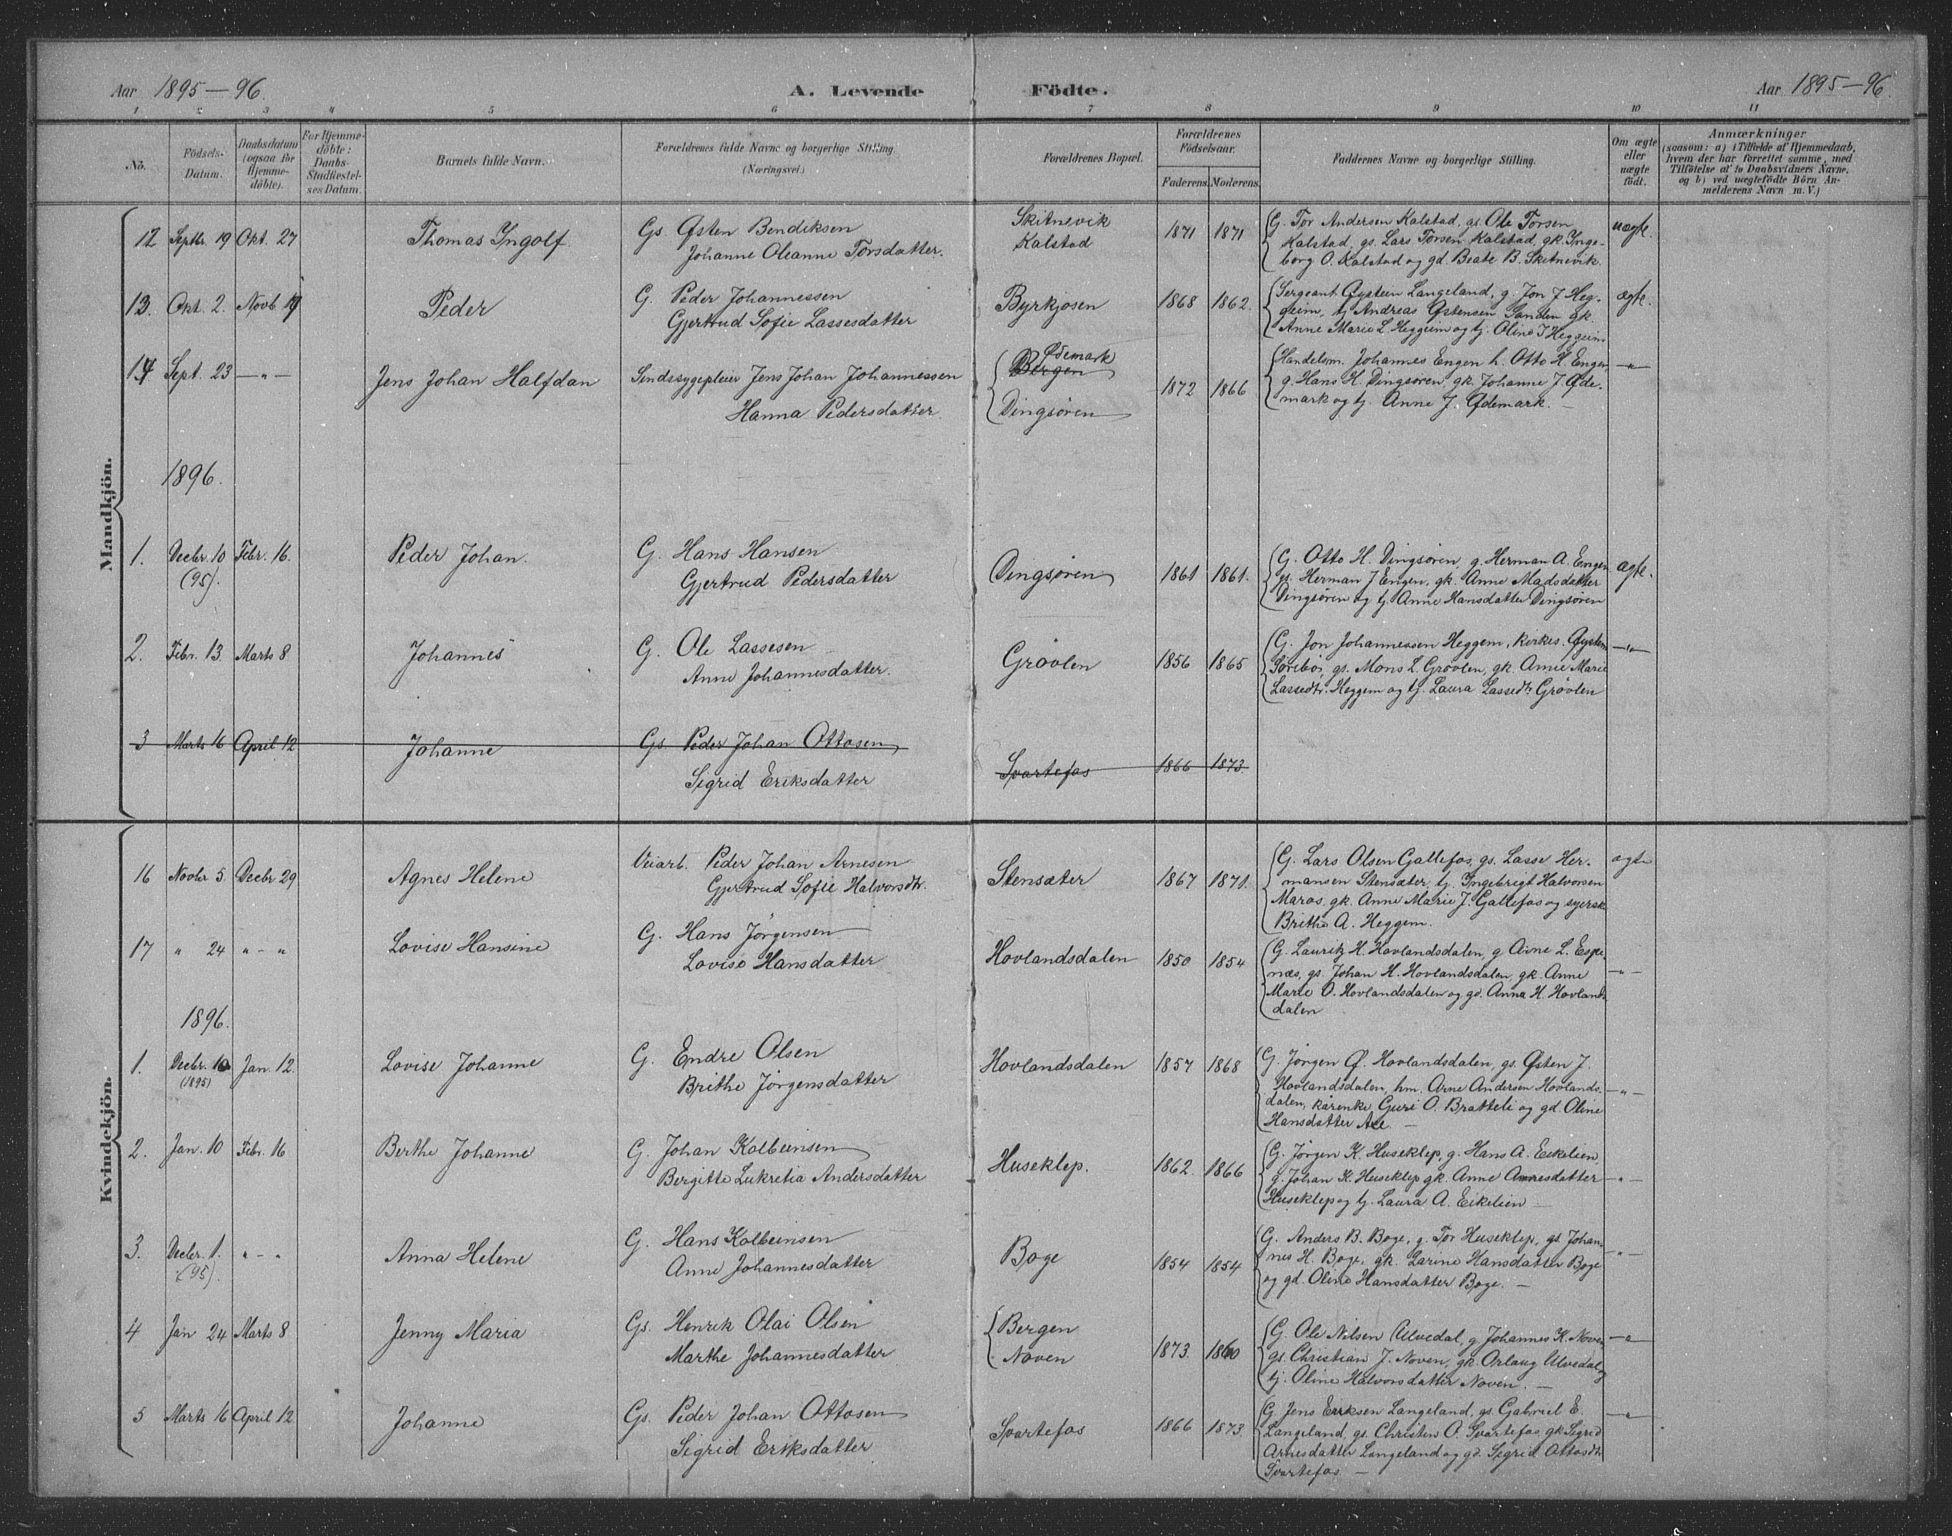 Aar 1895–96. A. Levende Födte. Aar 1895–96.
1 2 3 4 5 6 7 8 9 10 11
No.
Födsels-
Datum.
Daabsdatum
(ogsaa for
Hjemme-
döbte).
For Hjemme-
döbte:
Daabs-
Stadfæstel-
ses Datum.
Barnets fulde Navn.
Forældrenes fulde Navne og borgerlige Stilling.
(Næringsvei.)
Forældrenes Bopæl.
Forældrenes
Födselsaar.
Faderens. Moderens.
Faddernes Navne og borgerlige Stilling.
Om ægte
eller
uægte
födt.
Anmærkninger
(saasom: a) i Tilfælde af Hjemmedaab,
hvem der har forrettet samme, med
Tilföielse af to Daabsvidners Navne,
og b) ved uægtefödte Börn An-
melderens Navn m. V.)
Mandkjön.
12 Septbr. 19 Okt. 27 Thomas Ingolf Gs. Østen Bendiksen Skitnevik 1871 1871 G. Tor Andersen Kalstad, gs. Ole Torsen uægte.
Johanne Oleanne Torsdatter. Kalstad Kalstad, gs. Lars Torsen Kalstad, gk. Inge-
borg O. Kalstad og gd. Beate B. Skitnevik.
13. Okt. 2. Novb. Peder G. Peder Johannessen Byrkjosen 1868 1862. Sergeant Øystein Langeland, g. Jon J. Heg- ægte.
Gjertrud Sofie Lassesdatter geim, tj. Andreas Østensen Sanden gk.
Anne Marie L. Heggeim og tj. Oline J. Heggeim
14 Sept. 23 — " — Jens Johan Halfdan Sindssygepleier Jens Johan Johannessen Ødemark Bergen 1872 1866 Handelsm. Johannes Engen h. Otto H. Engen — " —
Hanna Pedersdatter. Dingsøren g. Hans H. Dingsøren, gk. Johanne J. Øde-
mark og tj. Anne J. Ødemark. —
1896.
1. Decbr. 10 Febr. 16. Peder Johan. G. Hans Hansen Dingsøren 1861 1861. G. Otto H. Dingsøren, g. Herman A. Engen ægte.
(95). Gjertrud Pedersdatter gs. Herman J. Engen, gk. Anne Madsdatter
Dingsøren og tj. Anne Hansdatter Dingsøren
2. Febr. 13. Marts 8 Johannes G. Ole Lassesen Grøvlen 1856 1865 G. Jon Johannessen Heggem, kirkes. Øystein — " —
Anne Johannesdatter. Sørebø, gs. Mons L. Grøvlen, gk. Anne Marie
Lassedtr. Heggem og tj. Laura Lassedtr. Grøvlen
3 Marts 16 April 12 Johanne Gs. Peder Johan Ottosen
Sigrid Eriksdatter Svartefos 1866 1873.
Kvindekjön.
16 Novbr 5. Decbr 29 Agnes Helene Veiarb. Peder Johan Arnesen Stensæter 1867 1871. G. Lars Olsen Gallefos, gs. Lasse Her- ægte
Gjertrud Sofie Halvorsdtr. mansen Stensæter, tj. Ingebrigt Halvorsen
Maros, gk. Anne Marie J. Gallefos og syersk
Brithe A. Heggem.
17 " 24 " – " Lovise Hansine G. Hans Jørgensen Hovlandsdalen 1850 1854 G. Lauritz H. Hovlandsdalen, g. Arne L. Espe
Lovise Hansdatter næs, gs. Johan H. Hovlandsdalen, gk. Anne — " —
Marie O. Hovlandsdalen og gd. Anna H. Hovlands
dalen
1896.
1. Decbr. 10 Jan. 12. Lovise Johanne G. Endre Olsen Hovlandsdalen 1857 1868 G. Jørgen Ø. Hovlandsdalen, gs. Østen J.
(1895) Brithe Jørgensdatter Hovlandsdalen, hm. Arne Andersen Hovlands- — " —
dalen, kårenke Guri O. Bratteli og gd. Oline
Hansdatter Aae. —
2. Jan. 10 Febr. 16 Berthe Johanne G. Johan Kolbeinsen Huseklep. 1862. 1866 G. Jørgen K. Huseklep, g. Hans A. Eikelien,
Bergitte Lukretia Andersdatter g. Johan K. Huseklep gk. Anne Annesdatter — " —
Huseklep og tj. Laura A. Eikelien —
3. Decbr. 1. " – " Anna Helene G. Hans Kolbeinsen Boge 1854 1854 G. Anders B. Boge, g. Tor Huseklep, gs. Johan- — " —
(95). Anne Johannesdatter nes H. Boge, gk. Zarine Hansdatter Boge
og gd. Oline Hansdatter Boge. —
4 Jan 24 Marts 8 Jenny Maria Gs. Henrik Olai Olsen Bergen 1873. 1860 G. Ole Nilsen Ulvedal, g. Johannes K. Noven — " —
Marthe Johannesdatter Noven gs. Christian J. Noven, gk. Orlaug Ulvedal og
tj. Oline Halvorsdatter Noven. —
5 Marts 16 April 12 Johanne Gs. Peder Johan Ottosen Svartefos 1866 1873. G. Jens Eriksen Langeland, gs. Gabriel E. — " —
Sigrid Eriksdatter Langeland, gs. Christen O. Svartefos, gk. Sigrid
Arnesdatter Langeland og gd. Sigrid Ottosdtr.
Svartefos —